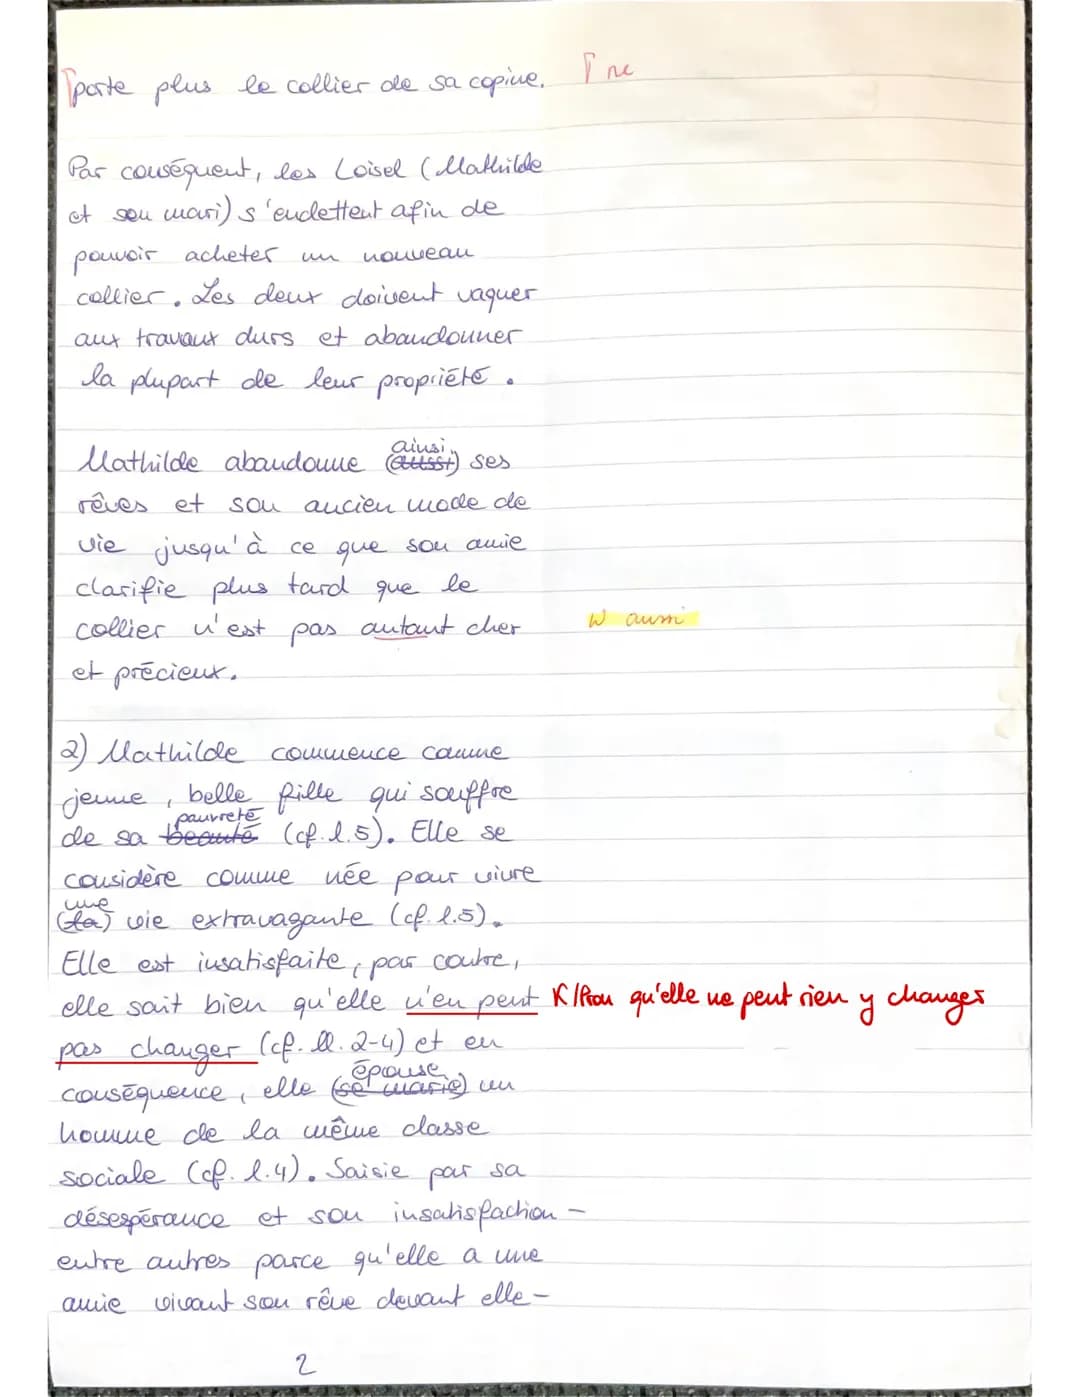 Γporte plus le collier de sa copine. Γ ne
Par conséquent, les Loisel (Mathilde
et son mari) s'endettent afin de
pouvoir acheter un nouveau
collier. Les deux doivent vaquer
aux travaux durs et abandonner
la plupart de leur propriété.
ainsi
Mathilde abandonne (aussi) ses
rêves et son ancien mode de
vie jusqu'à ce que son amie
clarifie plus tard que le
collier n'est pas autant cher W aussi
et précieux.
2) Mathilde commence comme
jeune, belle fille qui souffre
pauvreté
de sa beauté (cf. l.5). Elle se
considère comme née pour vivre
une
(la) vie extravagante (cf. l.5).
Elle est insatisfaite, par contre,
elle sait bien qu'elle n'en peut K/Pron qu'elle ne peut rien y changer
pas changer (cf. ll. 2-4) et en
épouse
conséquence, elle (se marie) un
homme de la même classe
sociale (cf. l.4). Saisie par sa
désespérance et son insatisfaction -
entre autres parce qu'elle a une
amie vivant son rêve devant elle -
2